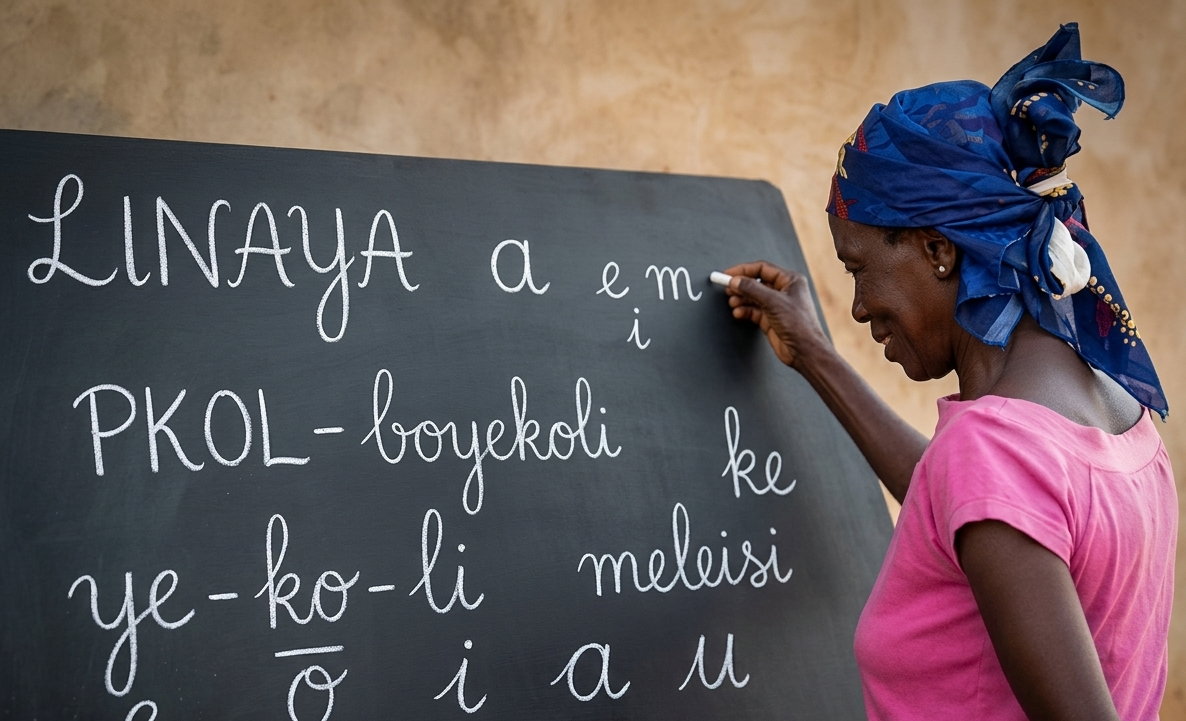 LINAYA a e m
i
PKOL-boyekoli
ke
ye-ko-li meleisi
o i a u